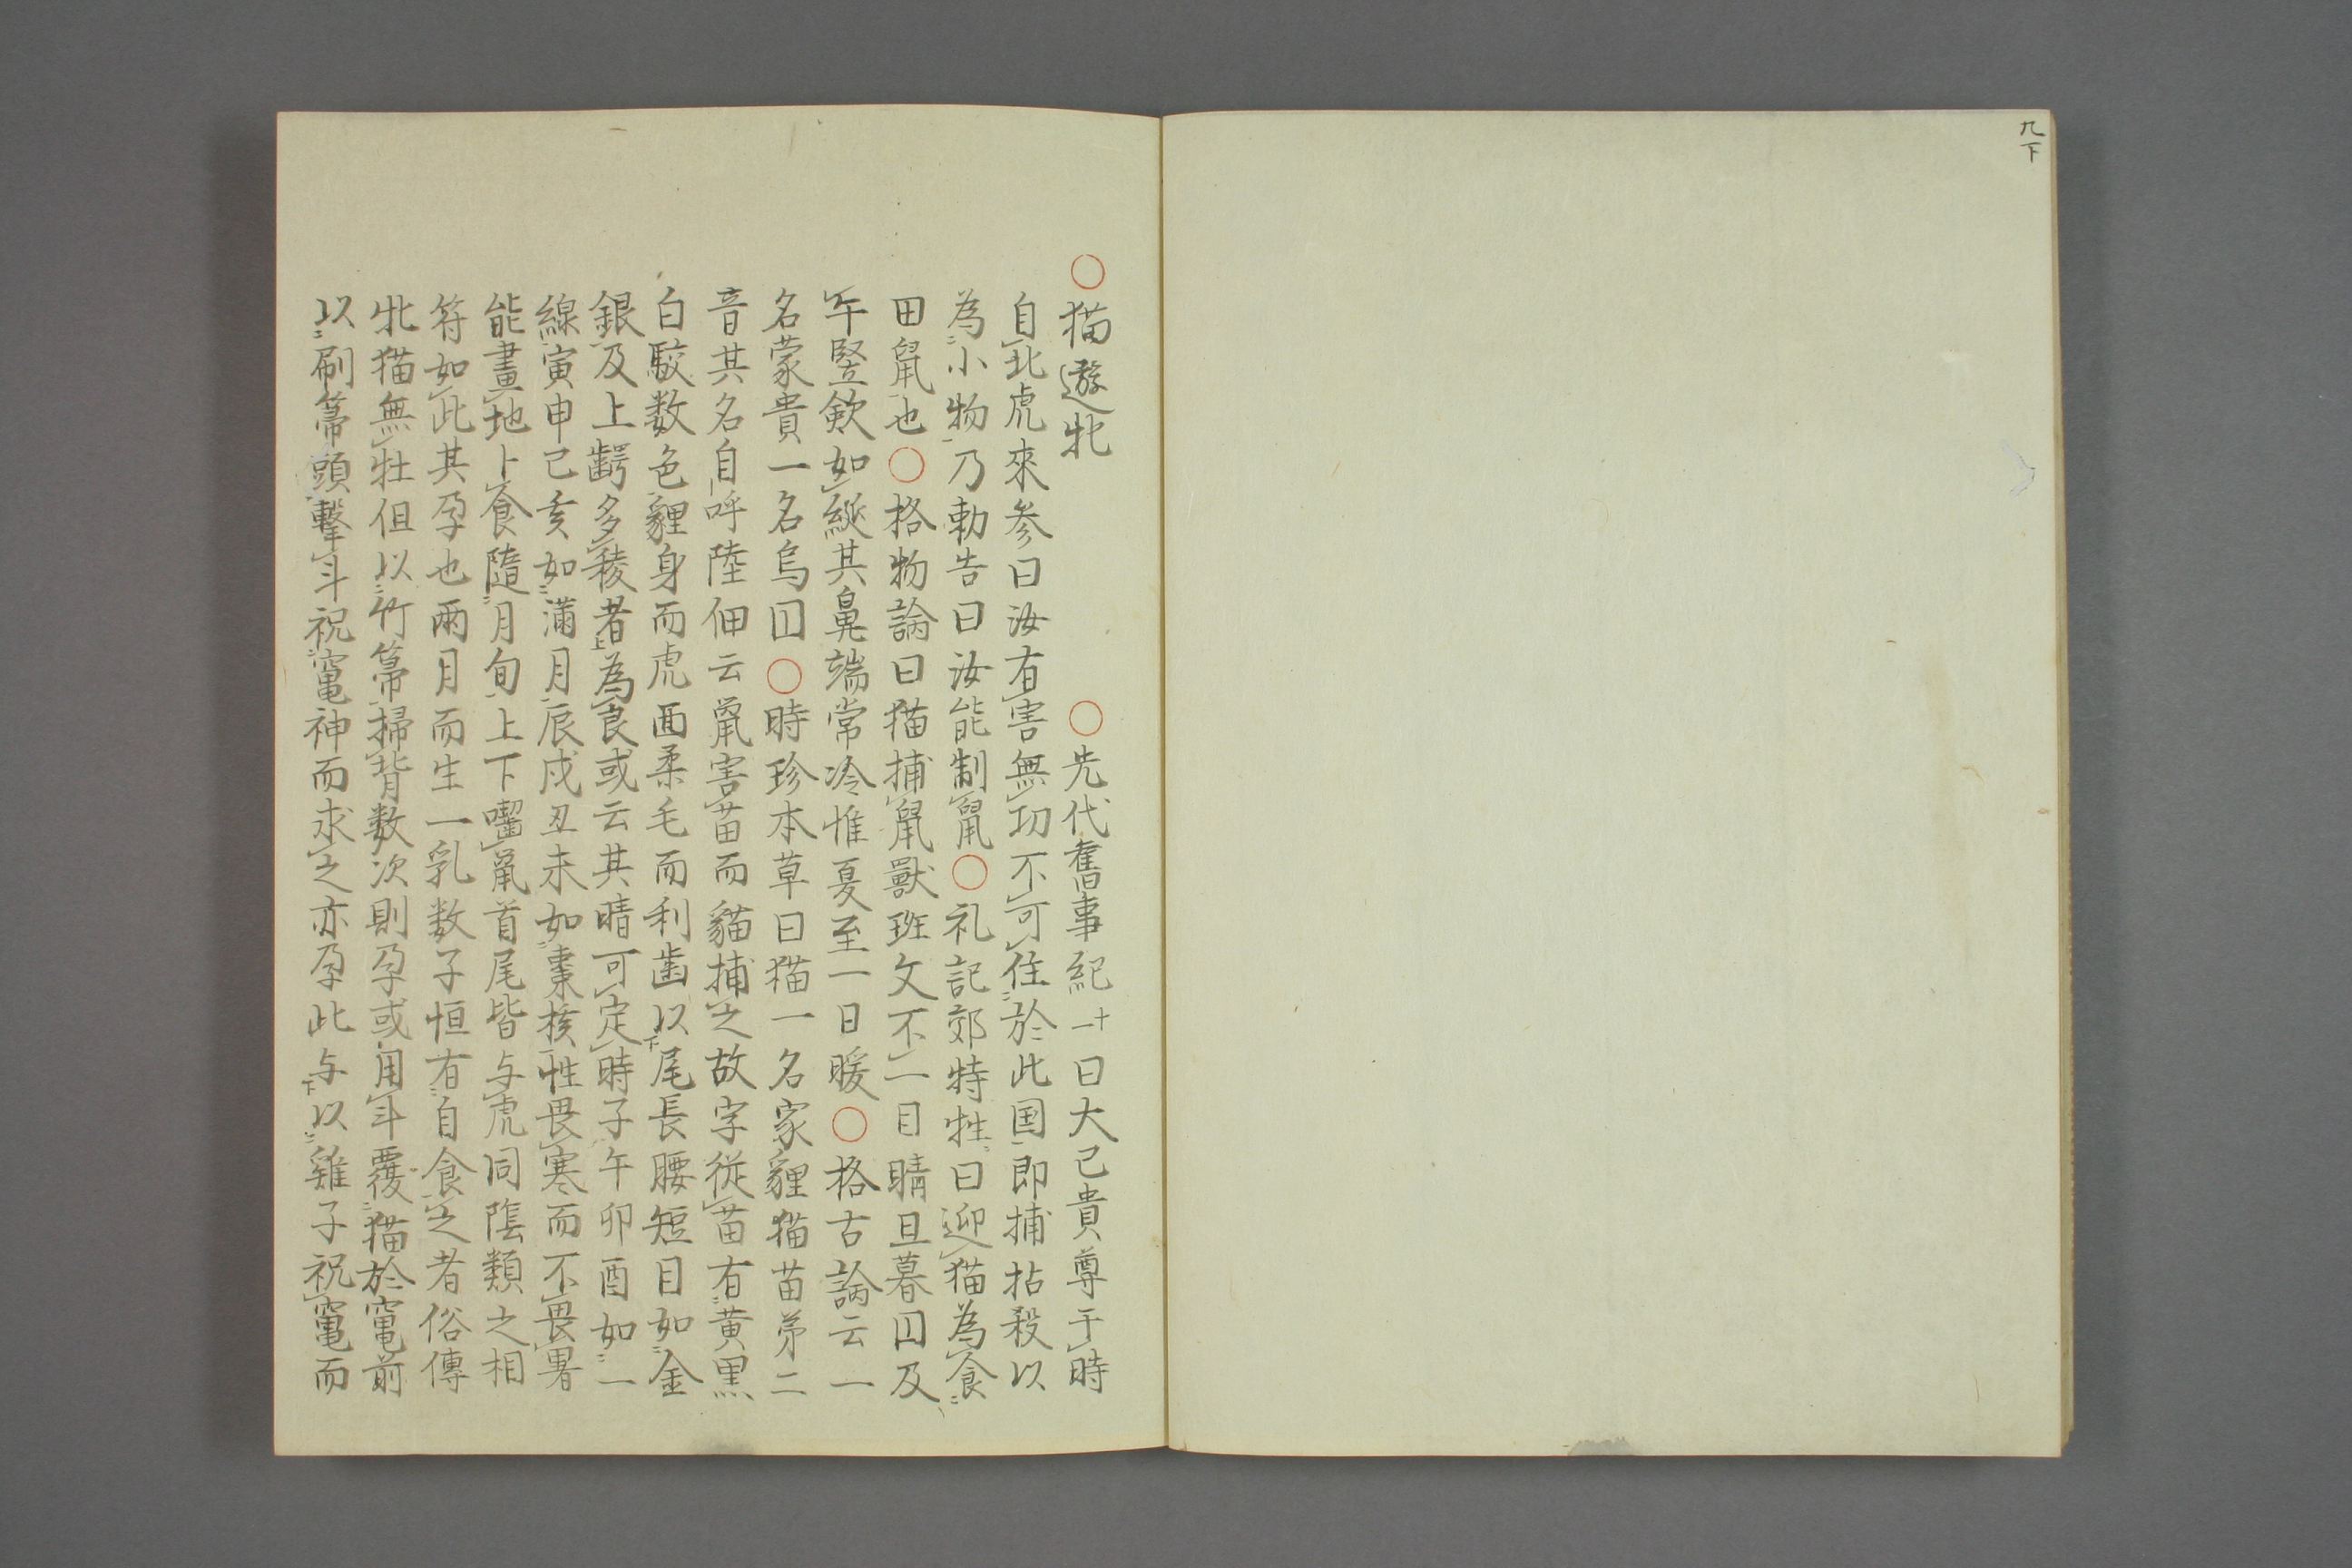 九下
○猫遊牝　○先代舊事紀十一曰大己貴尊于時
自北虎來参曰汝有害無功不可住於此国即捕拈殺以
為小物乃勅告曰汝能制鼠○礼記郊特牲曰迎猫為食
田鼠也○格物論曰猫捕鼠獸班文不一目睛旦暮囙及
午竪歛如縱其鼻端常冷惟夏至一日暖○格古論云一
名蒙貴一名烏囙○時珍本草曰猫一名家貍猫苗茅二
音其名自呼陸佃云鼠害苗而貓捕之故字従苗有黄黒
白駁数色貍身而虎面柔毛而利歯以尾長腰短目如金
銀及上齶多稜者為良或云其晴可定時子午卯酉如一
線寅申己亥如満月辰戌丑未如棗核性畏寒而不畏暑
能畫地卜食隨月旬上下囓鼠首尾皆与虎同隂類之相
符如此其孕也兩月而生一乳数子恒有自食之者俗傳
牝猫無牡但以竹箒掃背数次則孕或用斗覆猫於竃前
以刷箒頭擊斗祝竃神而求之亦孕此与以雞子祝竃而